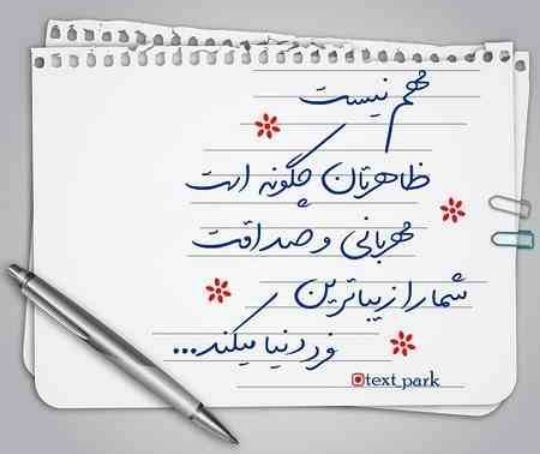 مهم نیست
ظاهرتان چگونه است
مهربانی و صداقت
شما را زیباترین
فرد دنیا میکند...
text_park